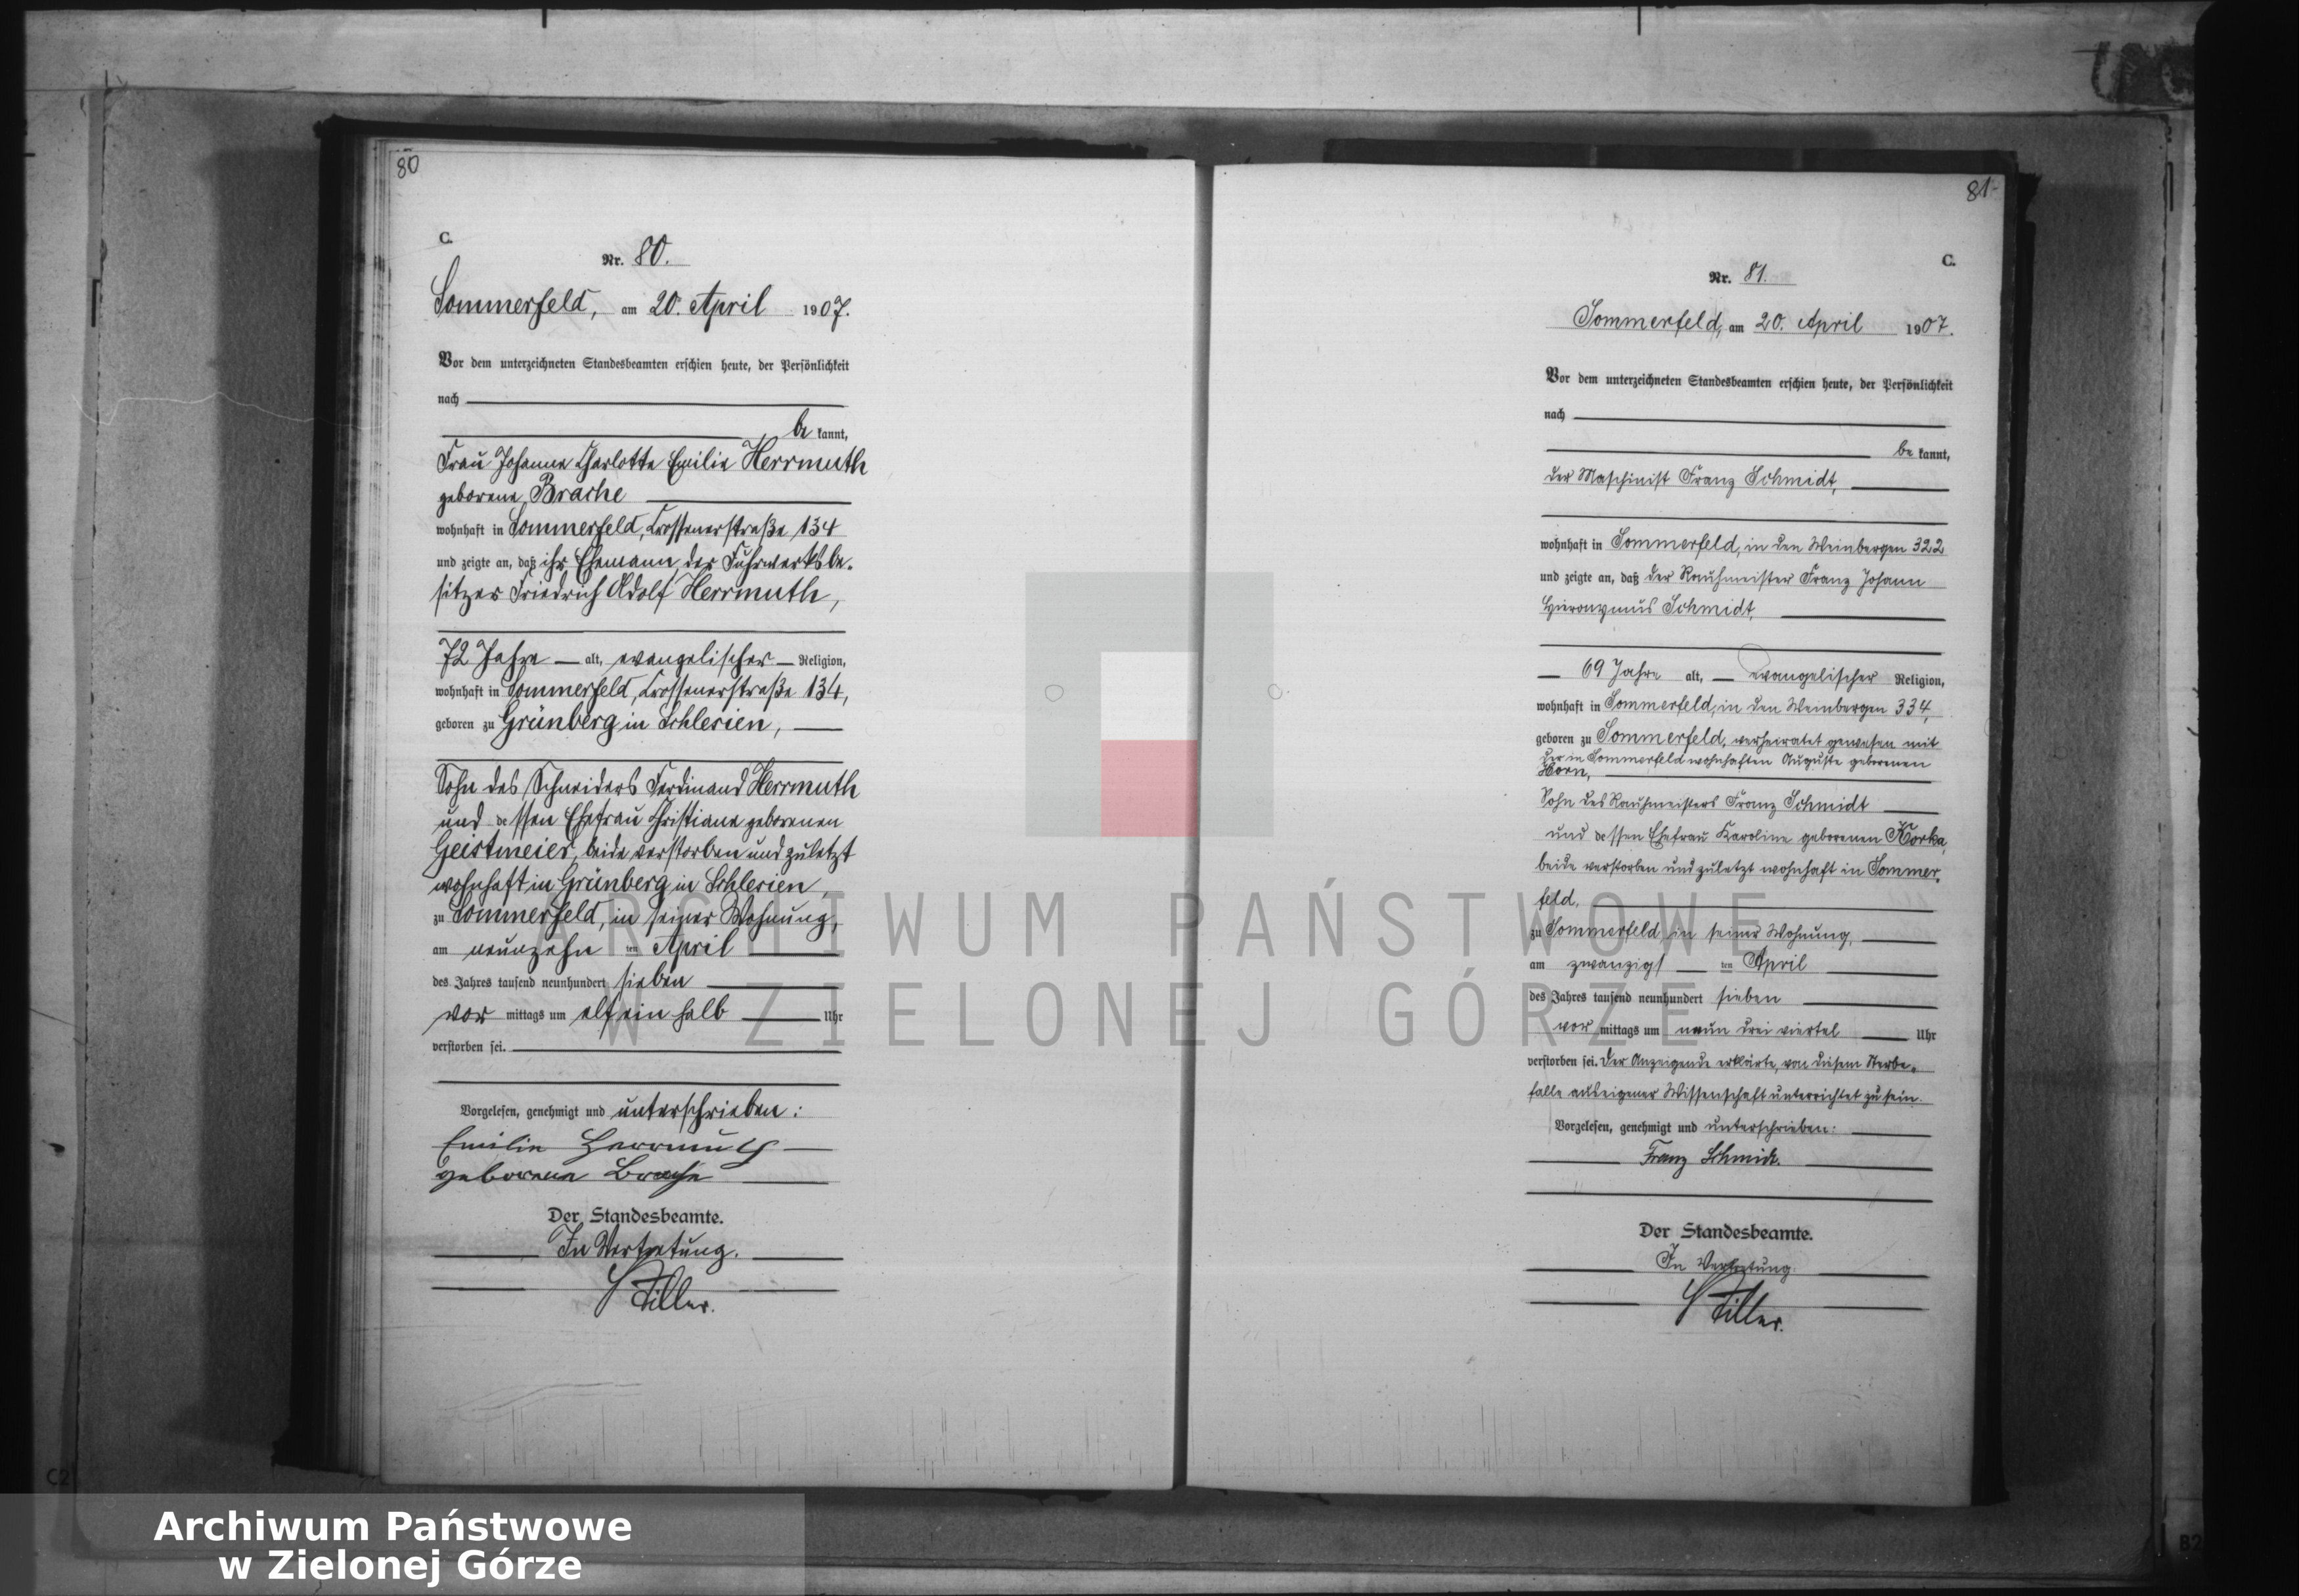 80
C.
Nr. 80.
Sommerfeld, am 20. April 1907.
Vor dem unterzeichneten Standesbeamten erschien heute, der Persönlichkeit
nach
be kannt,
Frau Johanne Charlotte Emilie Herrmuth
geborene Brache
wohnhaft in Sommerfeld, Crossenerstraße 134
und zeigte an, daß ihr Ehemann, der Fuhrwerksbe-
sitzer Friedrich Adolf Herrmuth,
72 Jahre alt, evangelischer Religion,
wohnhaft in Sommerfeld, Crossenerstraße 134,
geboren zu Grünberg in Schlesien,
Sohn des Schneiders Ferdinand Herrmuth
und dessen Ehefrau Christiane geborenen
Geistmeier, beide verstorben und zuletzt
wohnhaft in Grünberg in Schlesien,
zu Sommerfeld, in seiner Wohnung,
am neunzehn ten April
des Jahres tausend neunhundert sieben
vor mittags um elf ein halb Uhr
verstorben sei.
Vorgelesen, genehmigt und unterschrieben:
Emilie Herrmuth
geborene Brache
Der Standesbeamte.
In Vertretung.
Tiller.
81
C.
Nr. 81.
Sommerfeld, am 20. April 1907.
Vor dem unterzeichneten Standesbeamten erschien heute, der Persönlichkeit
nach
be kannt,
der Maschinist Franz Schmidt,
wohnhaft in Sommerfeld, in den Weinbergen 322
und zeigte an, daß der Rauhmeister Franz Johann
Hieronymus Schmidt,
69 Jahre alt, evangelischer Religion,
wohnhaft in Sommerfeld, in den Weinbergen 334,
geboren zu Sommerfeld, verheiratet gewesen mit
der in Sommerfeld wohnhaften Auguste geborenen
Horn,
Sohn des Rauhmeisters Franz Schmidt
und dessen Ehefrau Karoline geborenen Korka,
beide verstorben und zuletzt wohnhaft in Sommer-
feld,
zu Sommerfeld in seiner Wohnung,
am zwanzigs ten April
des Jahres tausend neunhundert sieben
vor mittags um neun drei viertel Uhr
verstorben sei. Der Anzeigende erklärte, von diesem Sterbe-
falle aus eigener Wissenschaft unterrichtet zu sein.
Vorgelesen, genehmigt und unterschrieben:
Franz Schmidt.
Der Standesbeamte.
In Vertretung
Tiller.
ARCHIWUM PAŃSTWOWE
W ZIELONEJ GÓRZE
C2
B2
Archiwum Państwowe
w Zielonej Górze